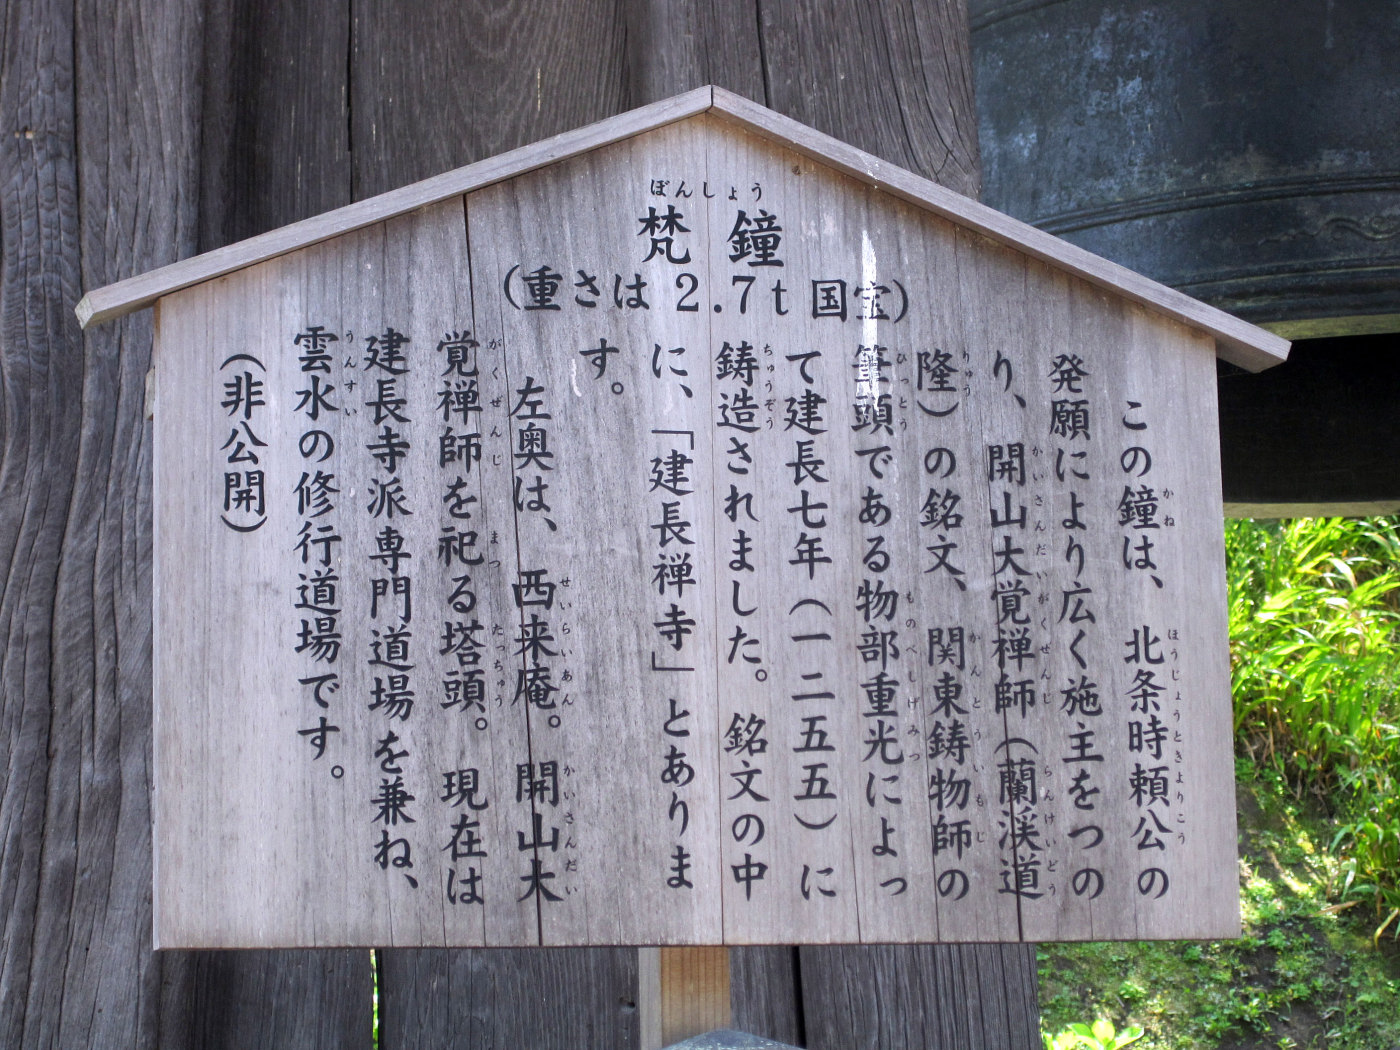 梵鐘
(重さは 2.7t 国宝)
この鐘は、北条時頼公の
発願により広く施主をつの
り、開山大覚禅師（蘭渓道
隆）の銘文、関東鋳物師の
筆頭である物部重光によっ
て建長七年（一二五五）に
鋳造されました。銘文の中
に、「建長禅寺」とありま
す。
左奥は、西来庵。開山大
覚禅師を祀る塔頭。現在は
建長寺派専門道場を兼ね、
雲水の修行道場です。
（非公開）